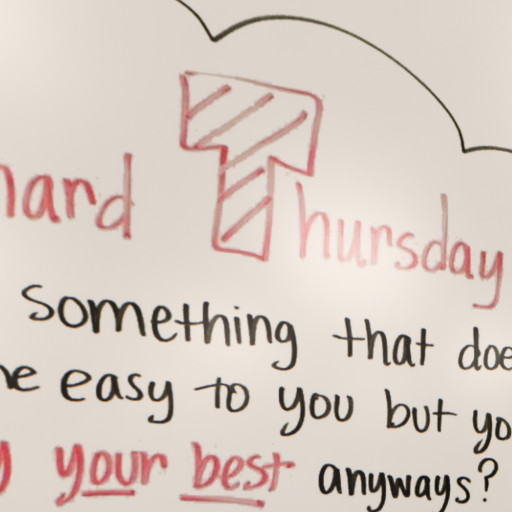 hard Thursday
something that doe
e easy to you but yo
your best anyways?